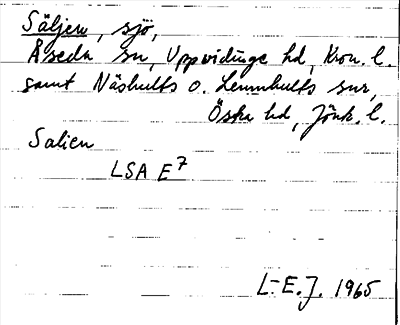 Säljen, sjö,
Åseda sn, Uppvidinge hd, Kron. l.
samt Näshults o. Lemnhults snr,
Östra hd, Jönk. l.
Salien
LSA E7
L-E.J. 1965